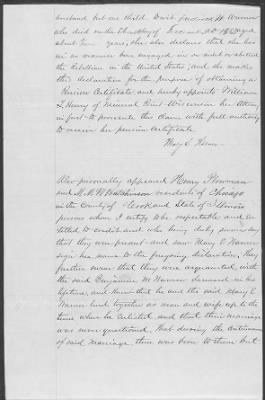 husband but one child David Fredrick W. Warner
who died on the Third day of A.D. 1862 aged
about years, she also declares that she has
in no manner been engaged in or aided or abetted
the Rebellion in the United States, and she makes
this declaration for the purpose of obtaining a
Pension Certificate and hereby appoints William
T. Henry of Mineral Point Wisconsin her Attorney
in fact to prosecute this claim with full authority
to receive her pension certificate
Mary E. Warner
Also personally appeared Henry Plowman
and M. M. Hutchinson residents of Chicago
in the County of Cook and State of Illinois
persons whom I certify to be respectable and en
titled to credit and who being duly sworn say
that they were present and saw Mary E Warner
sign her name to the foregoing declaration, they
further swear that they were acquainted with
the said Benjamin M Warner deceased in his
lifetime, and knew that he and the said Mary E
Warner lived together as man and wife up to the
time when he enlisted, and that their marriage
was never questioned, that during the continuance
of said marriage, there was born to them but